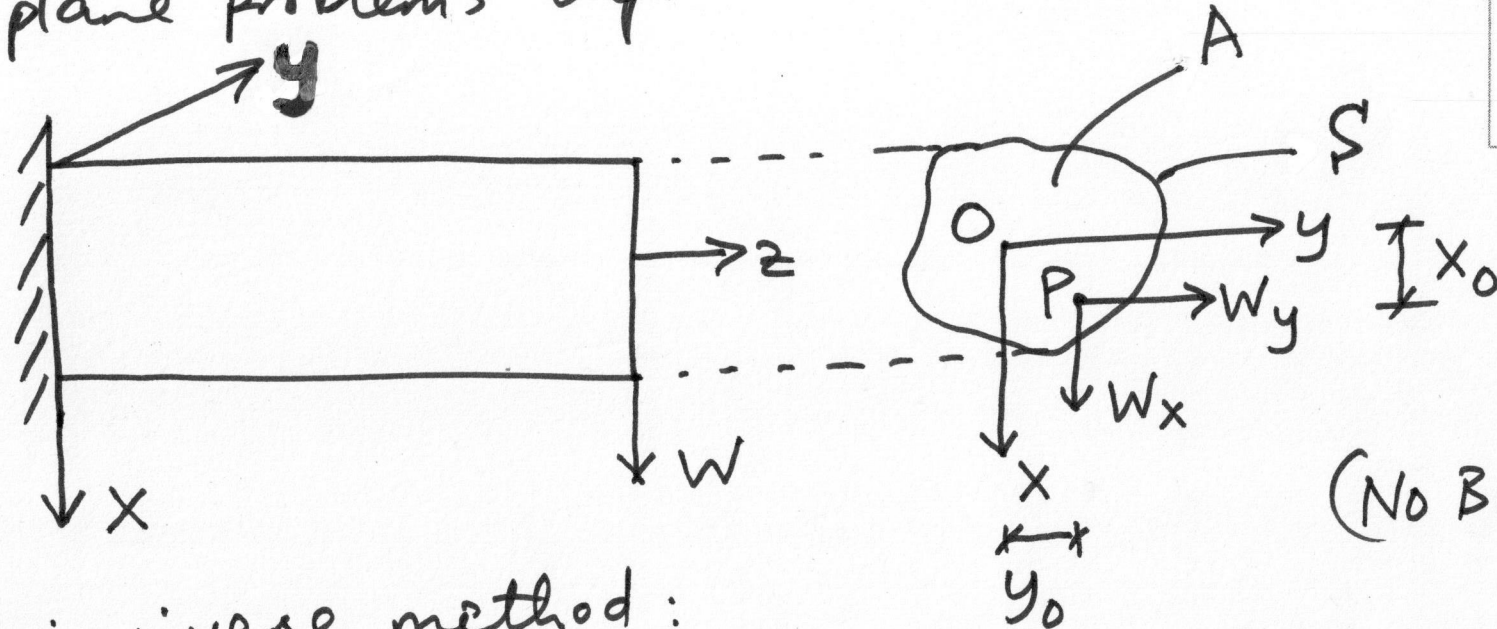 plane problems
y
A
S
O
y
x₀
P
W_y
z
W_x
W
x
x
(No B
y₀
method: